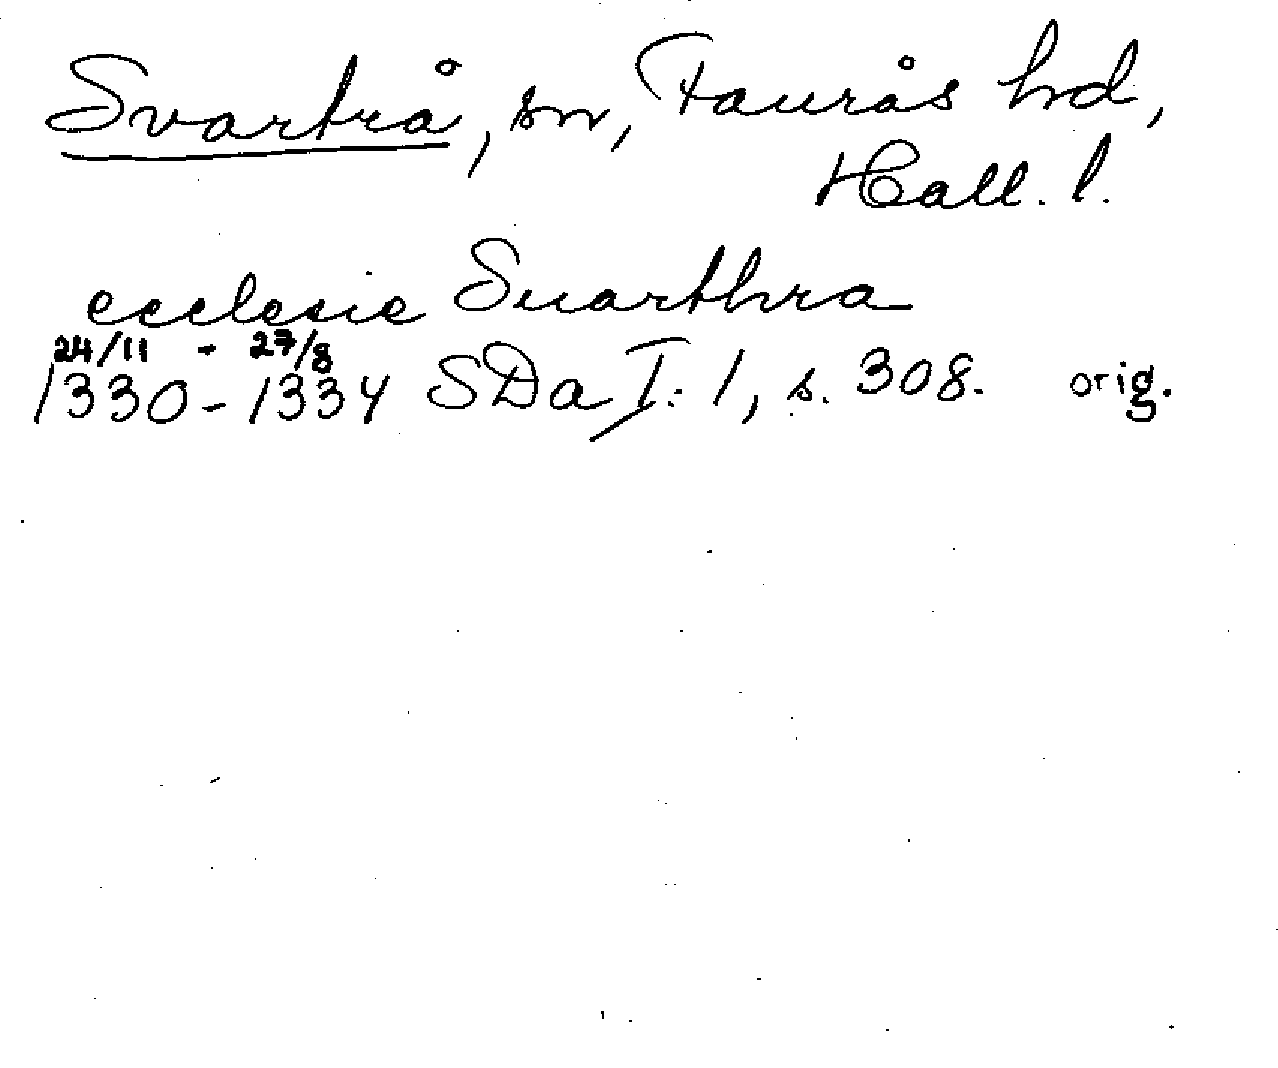 Svartrå, sn, Faurås hd,
Hall. l.
ecclesie Suarthra
24/11 - 27/8
1330-1334 SDa I:1, s. 308. orig.